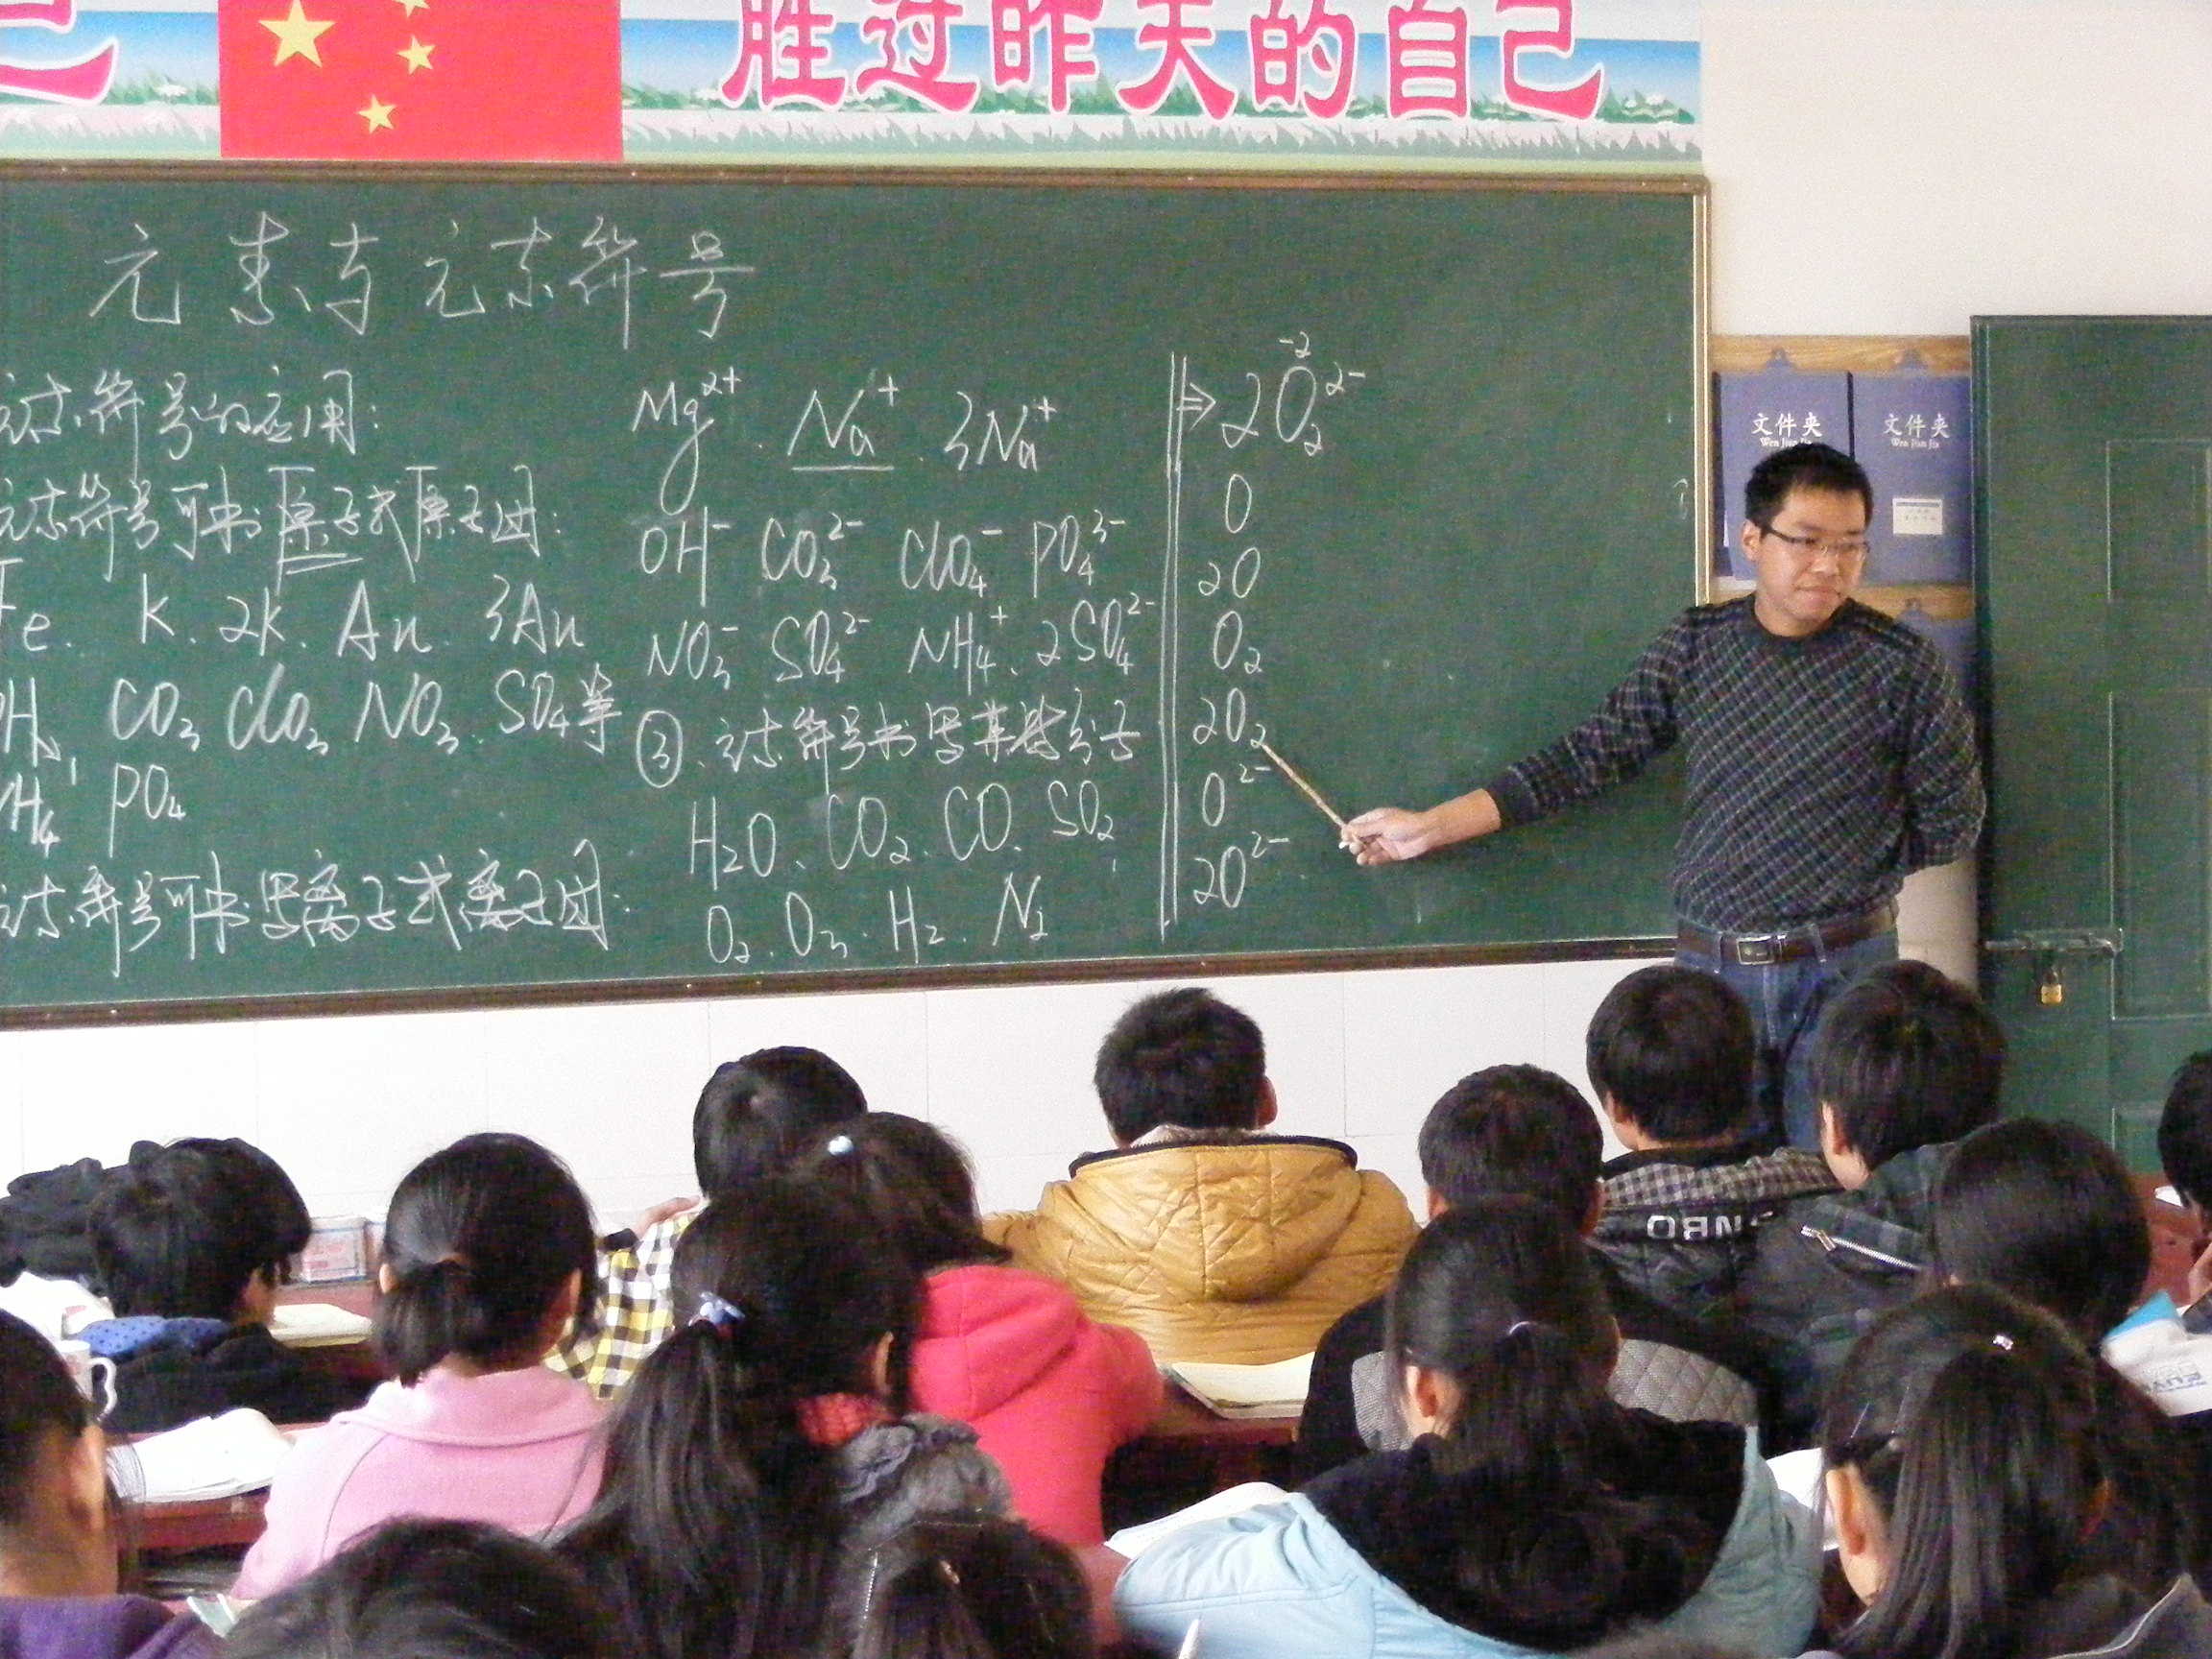 己 胜过昨天的自己
元素与元素符号
元素符号的应用:
元素符号可书原子或原子团:
Fe. K. 2K. Au. 3Au
OH, CO₃ ClO₃ NO₃. SO₄等
NH₄, PO₄
元素符号可书写离子或离子团:
Mg²⁺. Na⁺. 3Na⁺
OH⁻ CO₃²⁻ ClO₄⁻ PO₄³⁻
NO₃⁻ SO₄²⁻ NH₄⁺. 2SO₄²⁻
③.元素符号书写某些分子
H₂O、CO₂. CO. SO₂
O₂. O₃. H₂. N₂
-2
⇒ 2O₂²⁻
O
2O
O₂
2O₂
O²⁻
2O²⁻
文件夹 文件夹
Wen Jian Jia Wen Jian Jia